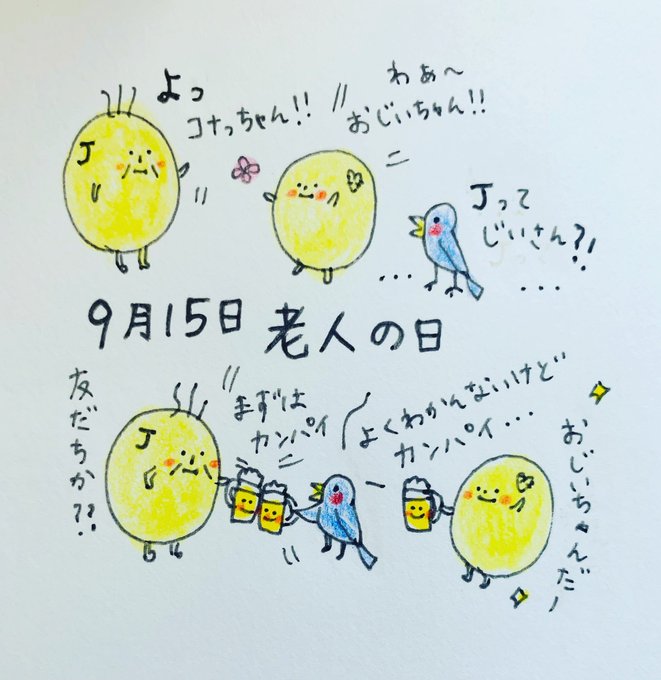 よっ
コナっちゃん!!
わぁ〜
おじいちゃん!!
J
Jって
じいさん?!
...
...
9月15日 老人の日
友だちか??
J
まずは
カンパイ
よくわかんないけど
カンパイ...
おじいちゃんだ!